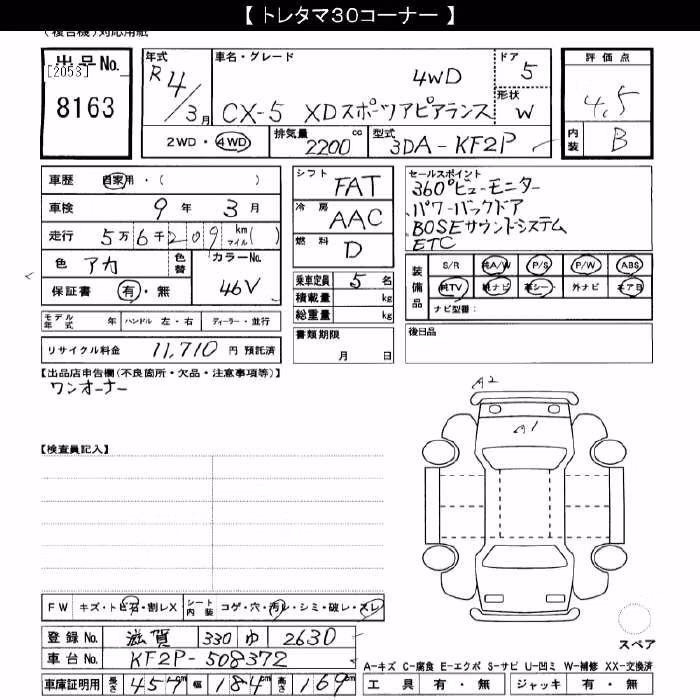 【 トレタマ30コーナー 】
(複合機)対応用紙
出品No. [2053] 8163
年式 R4/3月
車名・グレード 4WD CX-5 XDスポーツアピアランス
ドア 5
形状 W
2WD・4WD 排気量 2200 cc 型式 3DA-KF2P
評価点 4.5
内装 B
車歴 自家用・( )
車検 9年 3月
走行 5万6千209 km マイル( )
色 アカ 色替 カラーNo. 46V
保証書 有・無
モデル年式 年 ハンドル 左・右 ディーラー・並行
リサイクル料金 11,710 円 預託済
シフト FAT
冷房 AAC
燃料 D
乗車定員 5 名
積載量 kg
総重量 kg
書類期限 月 日
セールスポイント
360°ビューモニター
パワーバックドア
BOSEサウンドシステム
ETC
装備品 S/R 純A/W P/S P/W ABS
純TV 純ナビ 革シート 外ナビ エアB
ナビ型番:
後日品
【出品店申告欄(不良箇所・欠品・注意事項等)】
ワンオーナー
【検査員記入】
A2
A1
FW キズ・トビ石・割レX シート内装 コゲ・穴・汚レ・シミ・破レ・スレ
登録No. 滋賀 330 ゆ 2630
車台No. KF2P-508372
車庫証明用 長さ 457cm 幅 184cm 高さ 169cm
スペア
A-キズ C-腐食 E-エクボ S-サビ U-凹ミ W-補修 XX-交換済
工具 有・無 ジャッキ 有・無